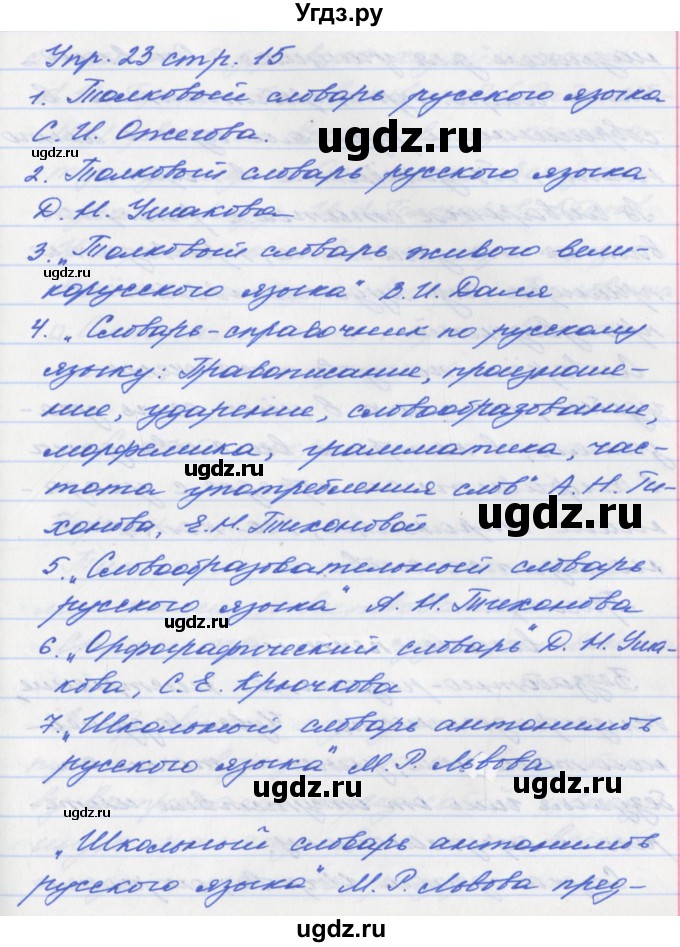 Угдз.ру
Упр. 23 стр. 15
1. Толковый словарь русского языка
С. И. Ожегова.
ugdz.ru
ugdz.ru
2. Толковый словарь русского языка
Д. Н. Ушакова
3. „Толковый словарь живого вели-
ugdz.ru
корусского языка" В. И. Даля
4. „Словарь-справочник по русскому
языку: Правописание, произноше-
ние, ударение, словообразование,
морфемика, грамматика, час-
ugdz.ru
тота употребления слов" А. Н. Ти-
хонова, Е. Н. Тихоновой
ugdz.ru
5. „Словообразовательный словарь
русского языка" А. Н. Тихонова
ugdz.ru
6. „Орфографический словарь" Д. Н. Уша-
кова, С. Е. Крючкова
7. „Школьный словарь антонимов
русского языка" М. Р. Львова
ugdz.ru
ugdz.ru
ugdz.ru
„Школьный словарь антонимов
русского языка" М. Р. Львова пред-
ugdz.ru